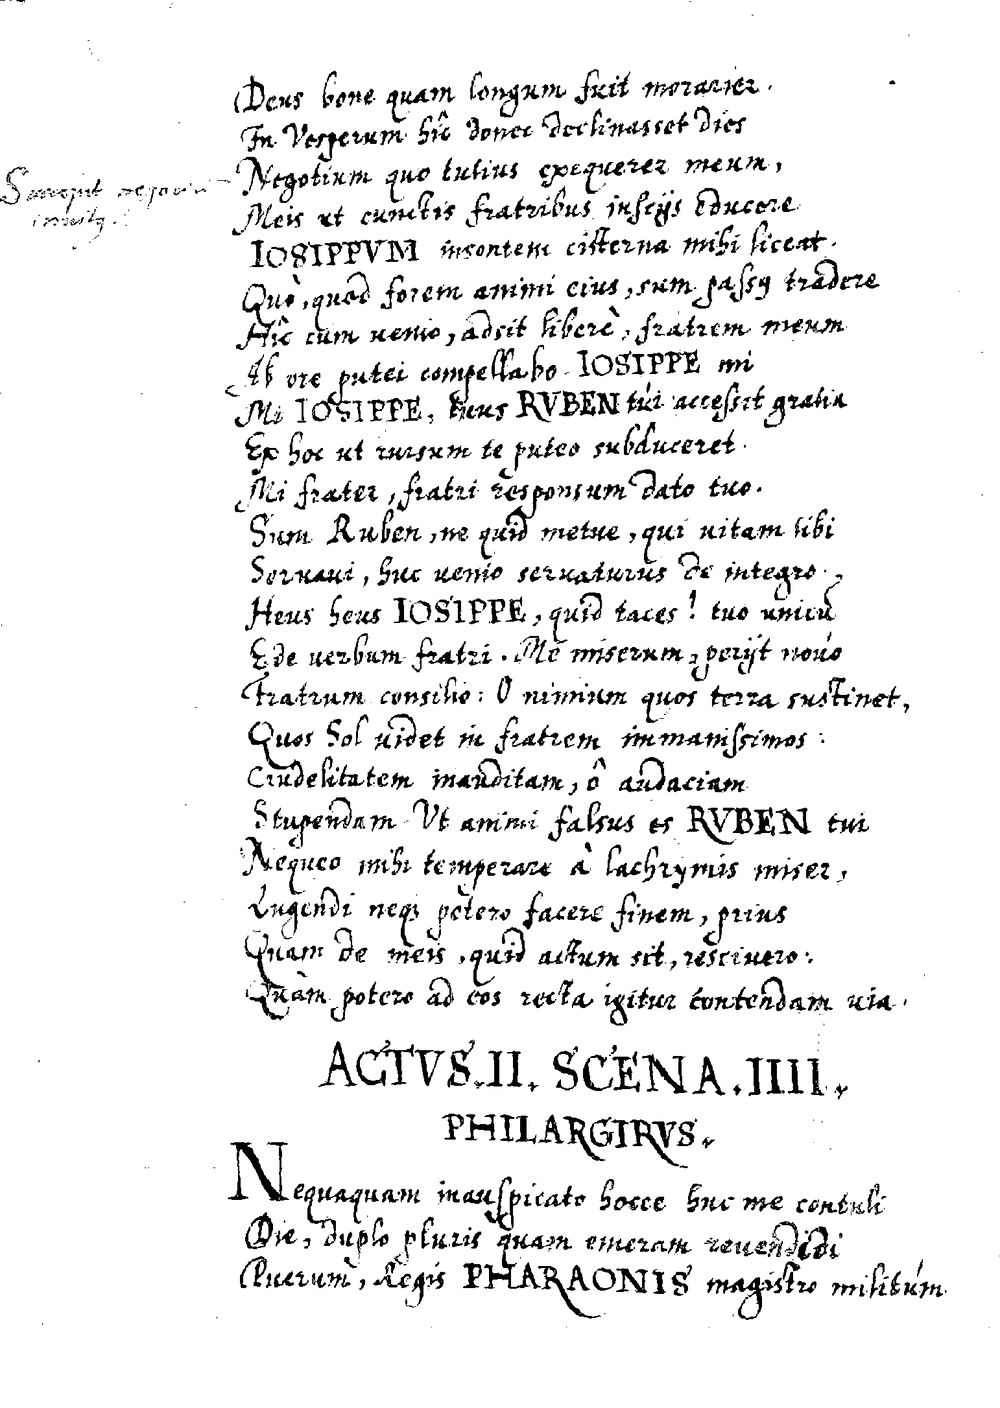 Deus bone quam longum fuit morarier.
In Vesperum hîc donec declinasset dies
Negotium quo tutius exequerer meum,
Meis ut cunctis fratribus insciis educere
IOSIPPVM insontem cisterna mihi liceat.
Quò, quod forem animi eius, sum passus tradere
Hîc cum uenio, adsit liberè, fratrem meum
Ab ore putei compellabo. IOSIPPE mi
Mi IOSIPPE, tuus RVBEN tui accessit gratia
Ex hoc ut rursum te puteo subduceret.
Mi frater, fratri responsum dato tuo.
Sum Ruben, ne quid metue, qui uitam tibi
Seruaui, huc uenio seruaturus de integro.
Heus heus IOSIPPE, quid taces! tuo unicū
Ede uerbum fratri. Me miserum, perijt nouo
Fratrum consilio: O nimium quos terra sustinet,
Quos Sol uidet in fratrem immanissimos:
Crudelitatem inauditam, ô audaciam
Stupendam. Ut animi falsus es RVBEN tui
Nequeo mihi temperare à lachrymis miser,
Lugendi neq; potero facere finem, prius
Quam de meis, quid actum sit, resciuero:
Quàm potero ad eos recta igitur contendam uia.
ACTVS.II. SCENA.IIII.
PHILARGIRVS.
Nequaquam inauspicato hocce huc me contuli
Die, duplo pluris quam emeram reuendidi
Puerum, Regis PHARAONIS magistro militúm